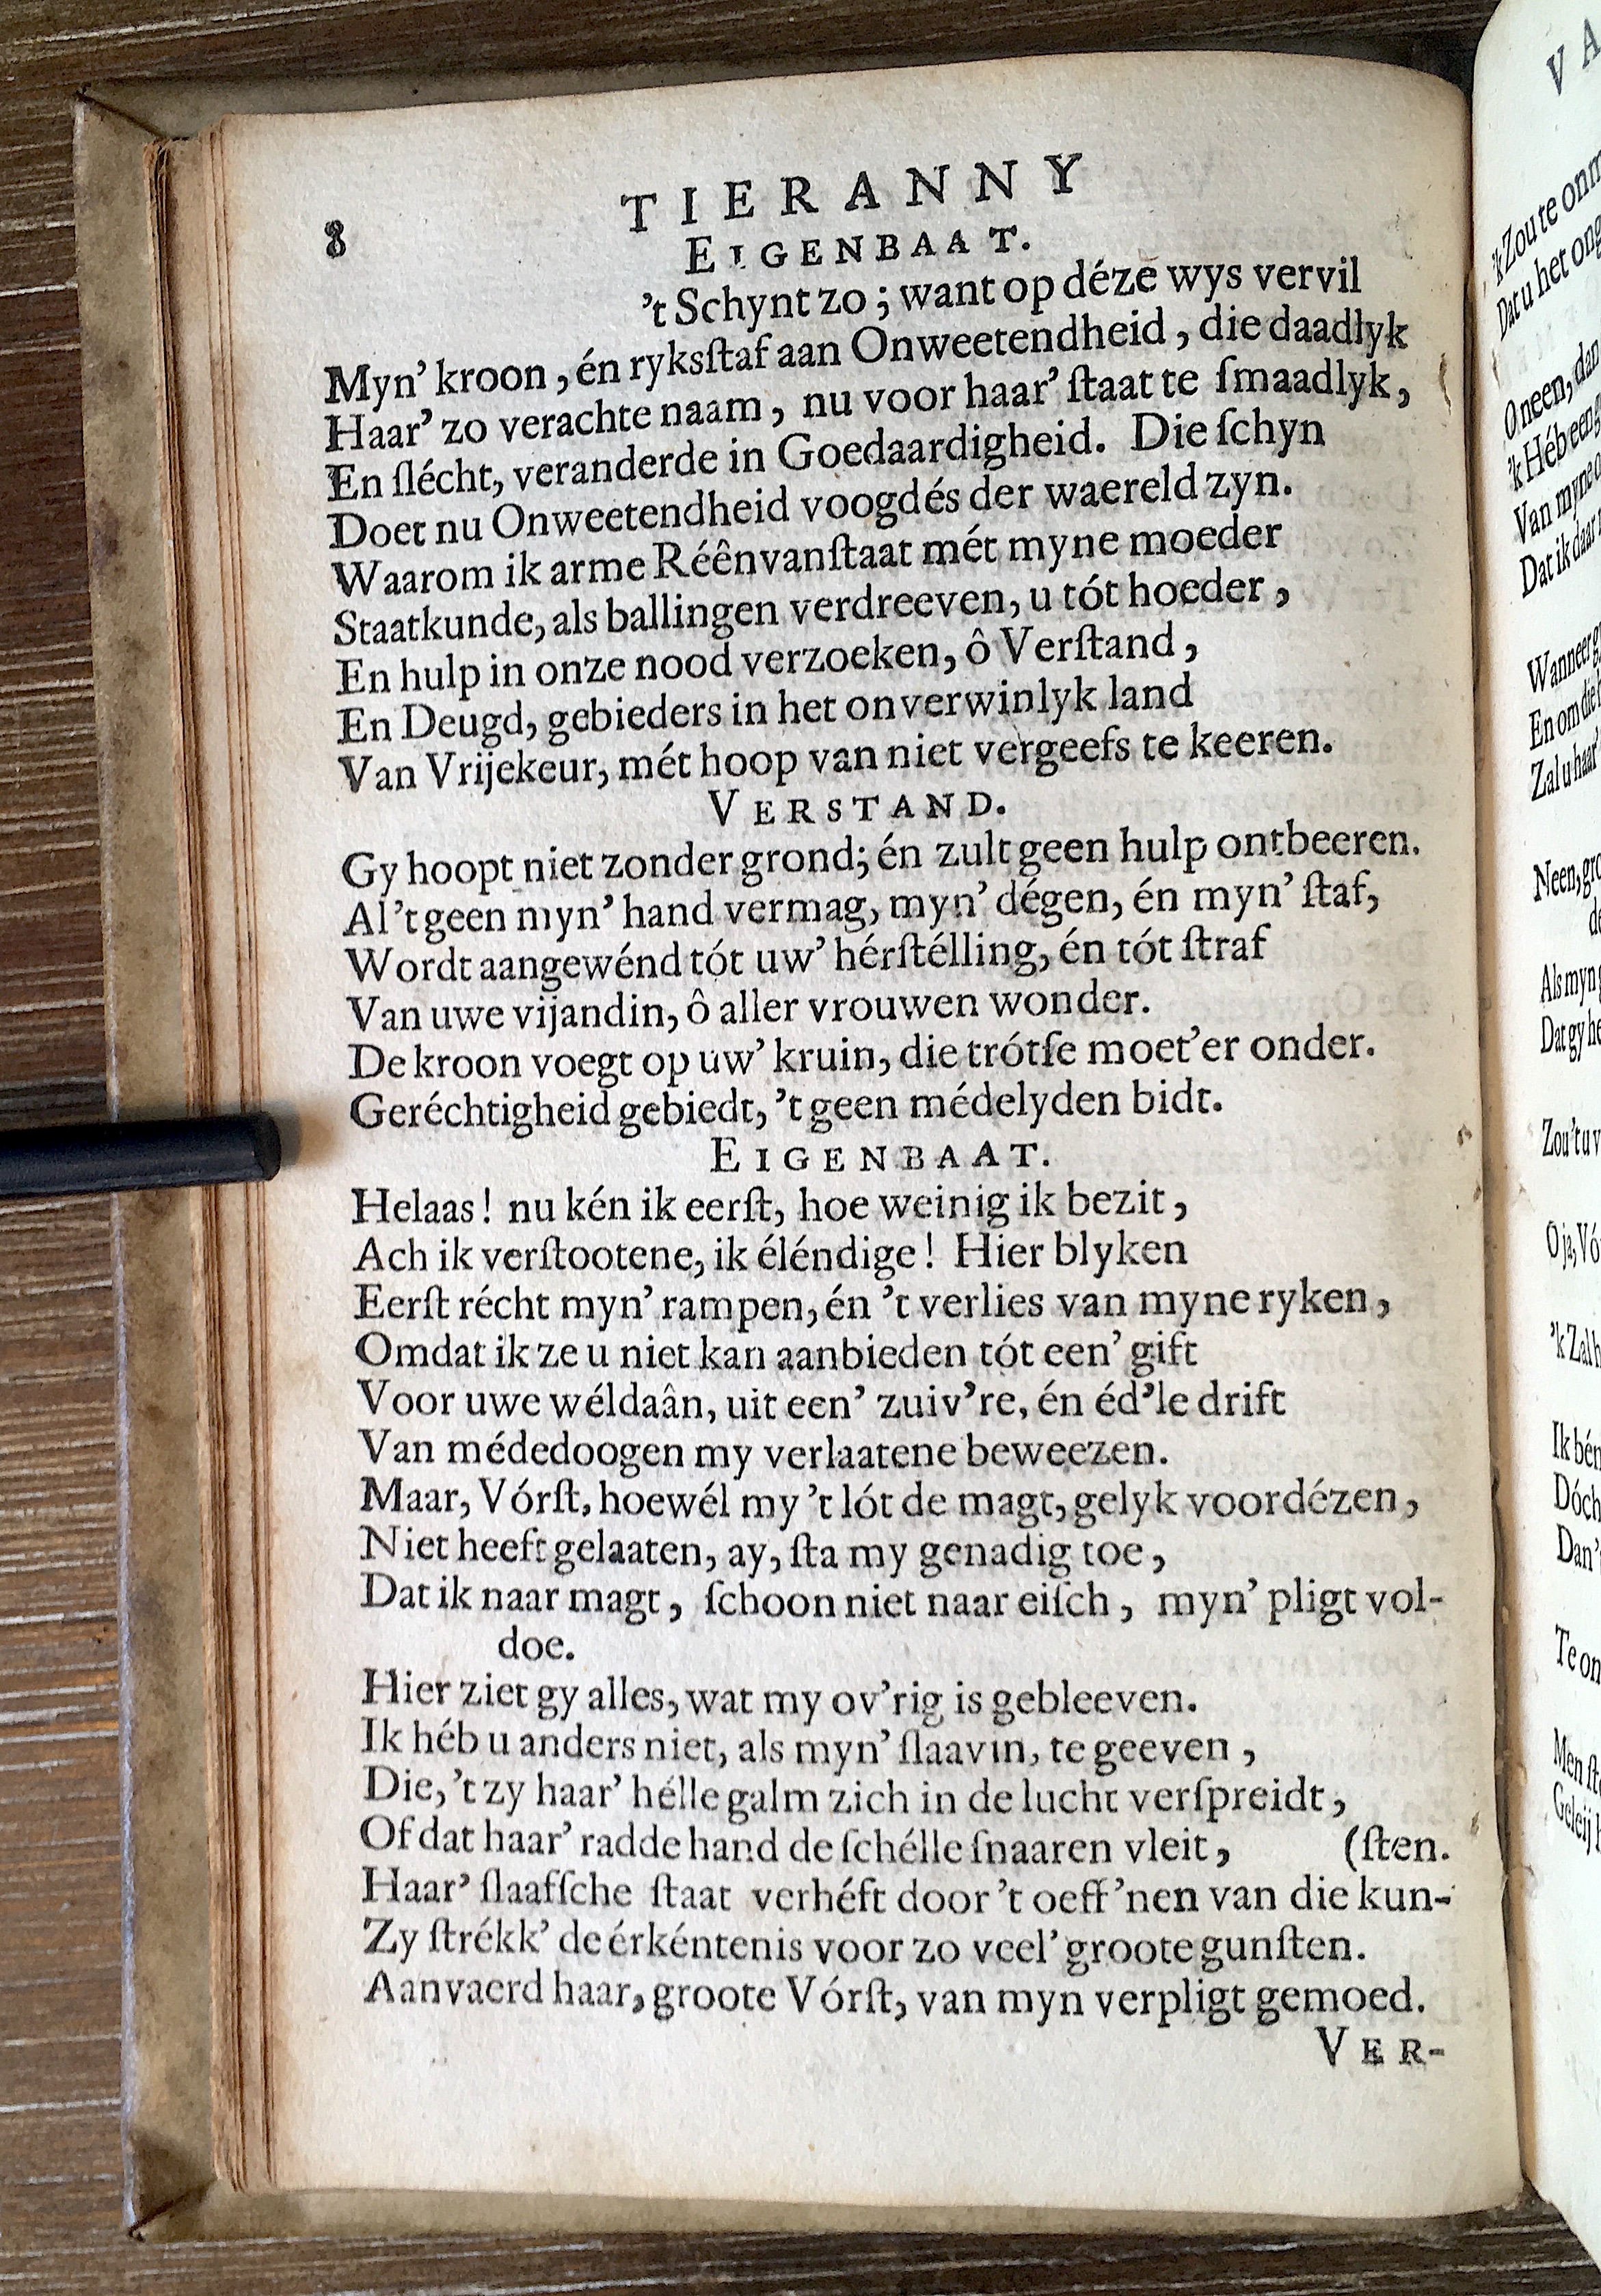 8
TIERANNY
EIGENBAAT.
't Schynt zo; want op déze wys vervil
Myn' kroon, én ryksſtaf aan Onweetendheid, die daadlyk
Haar' zo verachte naam, nu voor haar' ſtaat te ſmaadlyk,
En ſlécht, veranderde in Goedaardigheid. Die ſchyn
Doet nu Onweetendheid voogdés der waereld zyn.
Waarom ik arme Réênvanſtaat mét myne moeder
Staatkunde, als ballingen verdreeven, u tót hoeder,
En hulp in onze nood verzoeken, ô Verſtand,
En Deugd, gebieders in het onverwinlyk land
Van Vrijekeur, mét hoop van niet vergeefs te keeren.
VERSTAND.
Gy hoopt niet zonder grond; én zult geen hulp ontbeeren.
Al 't geen myn' hand vermag, myn' dégen, én myn' ſtaf,
Wordt aangewénd tót uw' hérſtélling, én tót ſtraf
Van uwe vijandin, ô aller vrouwen wonder.
De kroon voegt op uw' kruin, die trótſe moet'er onder.
Geréchtigheid gebiedt, 't geen médelyden bidt.
EIGENBAAT.
Helaas! nu kén ik eerſt, hoe weinig ik bezit,
Ach ik verſtootene, ik éléndige! Hier blyken
Eerſt récht myn' rampen, én 't verlies van myne ryken,
Omdat ik ze u niet kan aanbieden tót een' gift
Voor uwe wéldaân, uit een' zuiv're, én éd'le drift
Van médedoogen my verlaatene beweezen.
Maar, Vórſt, hoewél my 't lót de magt, gelyk voordézen,
Niet heeft gelaaten, ay, ſta my genadig toe,
Dat ik naar magt, ſchoon niet naar eiſch, myn' pligt vol-
doe.
Hier ziet gy alles, wat my ov'rig is gebleeven.
Ik héb u anders niet, als myn' ſlaavin, te geeven,
Die, 't zy haar' hélle galm zich in de lucht verſpreidt,
Of dat haar' radde hand de ſchélle ſnaaren vleit, (ſten.
Haar' ſlaafſche ſtaat verhéft door 't oeff'nen van die kun-
Zy ſtrékk' de érkéntenis voor zo veel' groote gunſten.
Aanvaerd haar, groote Vórſt, van myn verpligt gemoed.
VER-
VA
'k Zou te
Dat u het
O neen, dan
'k Héb een
Van myne
Dat ik daar
Wanneer
En om die
Zal u haar'
Neen,
Als myn
Dat gy
Zou 't u
O ja,
'k Zal
Ik bén
Dóch
Dan
Te
Men